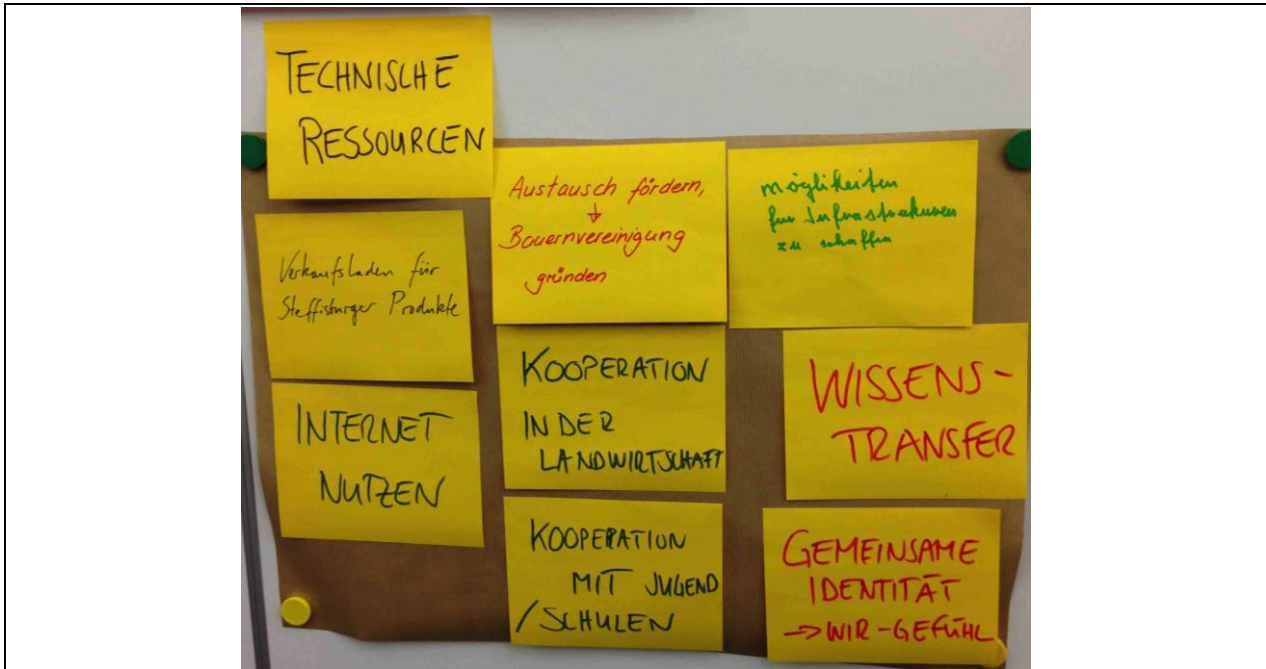 TECHNISCHE
RESSOURCEN
Verkaufsladen für
Steffisburger Produkte
INTERNET
NUTZEN
Austausch fördern,
↓
Bauernvereinigung
gründen
KOOPERATION
IN DER
LANDWIRTSCHAFT
KOOPERATION
MIT JUGEND
/ SCHULEN
möglikeiten
für Infrastrukturen
zu schaffen
WISSENS-
TRANSFER
GEMEINSAME
IDENTITÄT
→ WIR-GEFÜHL